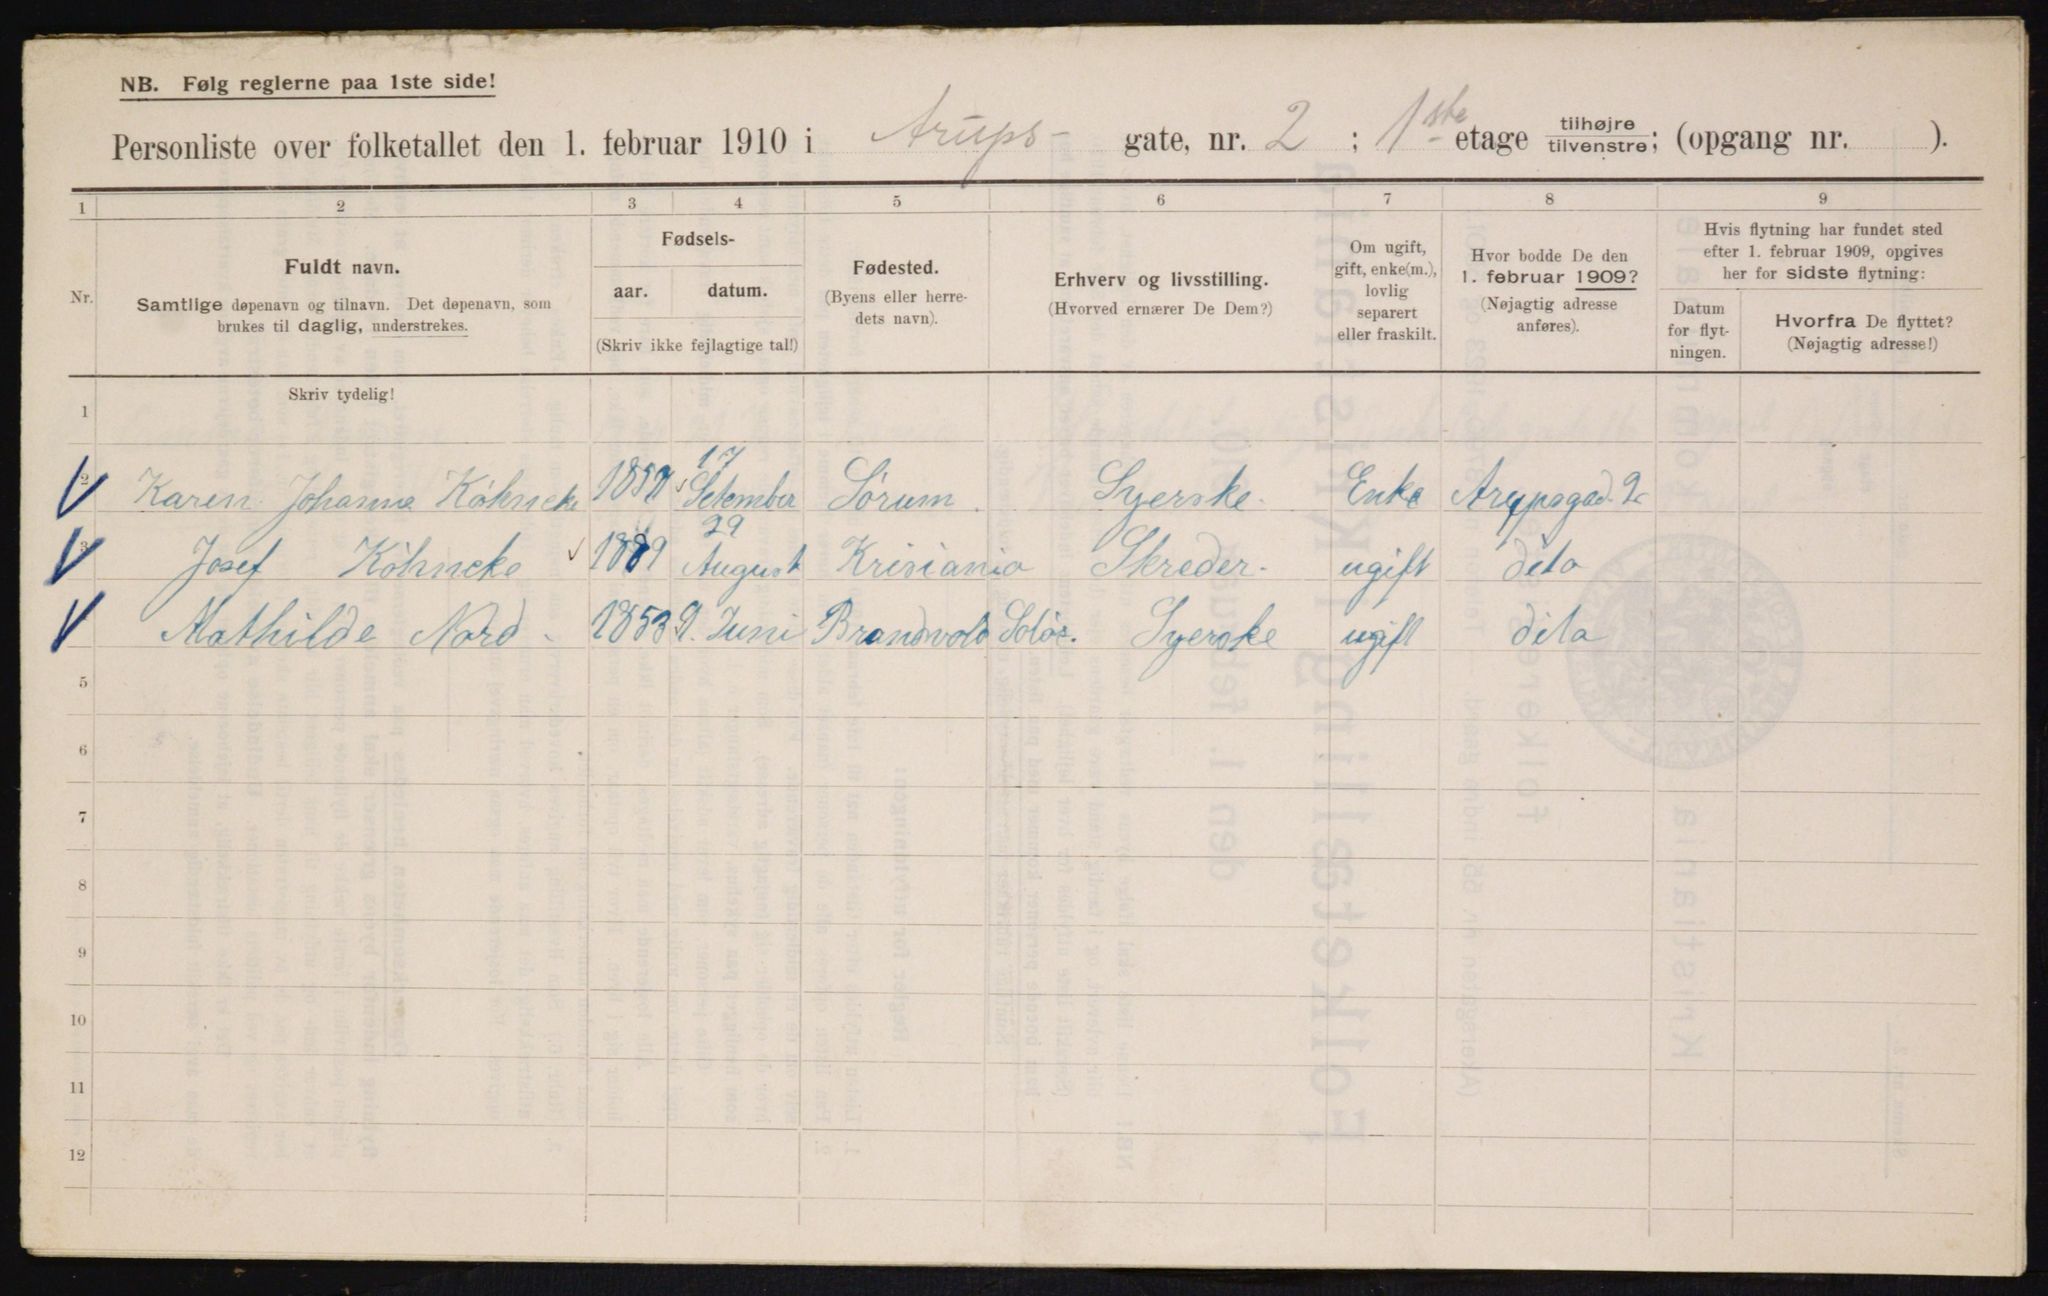 NB. Følg reglerne paa 1ste side!
Personliste over folketallet den 1. februar 1910 i Arups- gate, nr. 2 ; 1ste etage tilhøjre / tilvenstre; (opgang nr. ).
1 2 3 4 5 6 7 8 9
Nr.
Fuldt navn.
Samtlige døpenavn og tilnavn. Det døpenavn, som
brukes til daglig, understrekes.
Fødsels-
aar. datum.
(Skriv ikke fejlagtige tal!)
Fødested.
(Byens eller herre-
dets navn).
Erhverv og livsstilling.
(Hvorved ernærer De Dem?)
Om ugift,
gift, enke(m.),
lovlig
separert
eller fraskilt.
Hvor bodde De den
1. februar 1909?
(Nøjagtig adresse
anføres).
Hvis flytning har fundet sted
efter 1. februar 1909, opgives
her for sidste flytning:
Datum
for flyt-
ningen.
Hvorfra De flyttet?
(Nøjagtig adresse!)
Skriv tydelig!
1
2 Karen Johanna Köhncke 1857 17 Setember Sörum Syerske Enke Arupsgad. 2
3 Josef Köhncke 1889 29 August Krisiania Skreder ugift dito
Mathilde Nord 1853 9. Juni Brandvold Solör. Syerske ugift dito
5
6
7
8
9
10
11
12